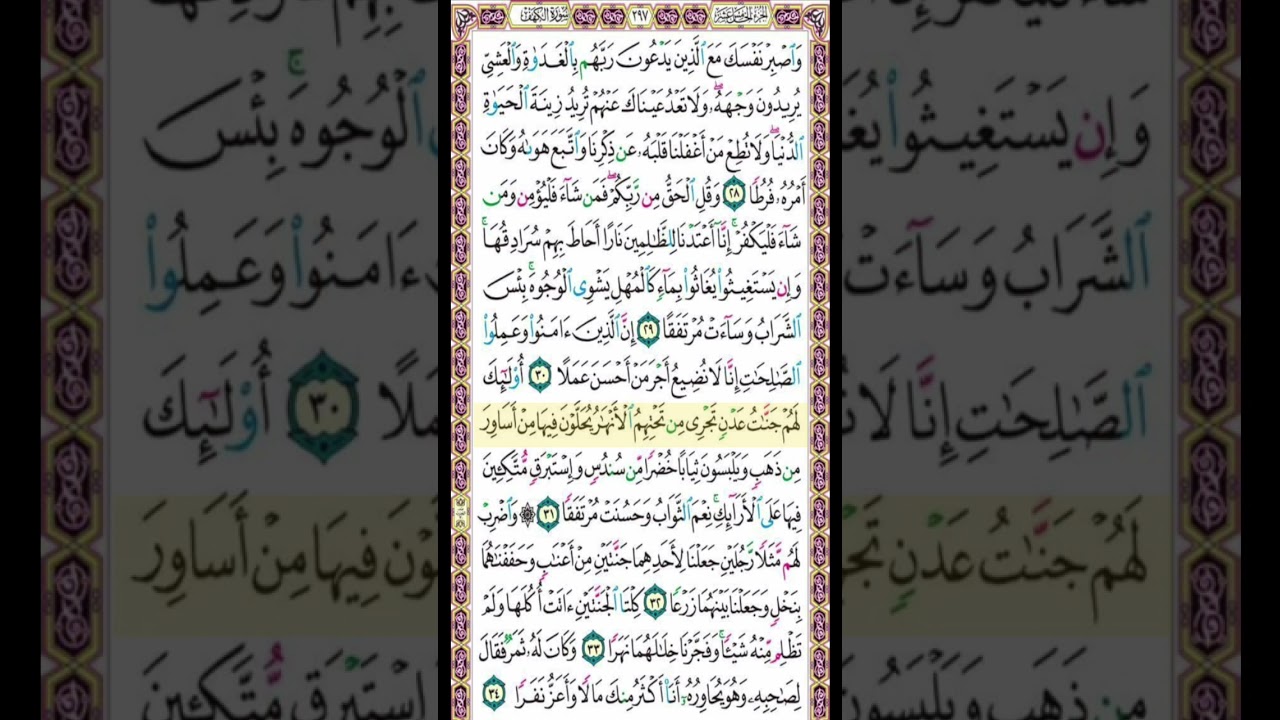 الجزء الخامس عشر ٢٩٧ سورة الكهف
وَٱصْبِرْ نَفْسَكَ مَعَ ٱلَّذِينَ يَدْعُونَ رَبَّهُم بِٱلْغَدَوٰةِ وَٱلْعَشِىِّ
يُرِيدُونَ وَجْهَهُۥ ۖ وَلَا تَعْدُ عَيْنَاكَ عَنْهُمْ تُرِيدُ زِينَةَ ٱلْحَيَوٰةِ
ٱلدُّنْيَا ۖ وَلَا تُطِعْ مَنْ أَغْفَلْنَا قَلْبَهُۥ عَن ذِكْرِنَا وَٱتَّبَعَ هَوَىٰهُ وَكَانَ
أَمْرُهُۥ فُرُطًا ٢٨ وَقُلِ ٱلْحَقُّ مِن رَّبِّكُمْ ۖ فَمَن شَآءَ فَلْيُؤْمِن وَمَن
شَآءَ فَلْيَكْفُرْ ۚ إِنَّآ أَعْتَدْنَا لِلظَّـٰلِمِينَ نَارًا أَحَاطَ بِهِمْ سُرَادِقُهَا ۚ
وَإِن يَسْتَغِيثُوا۟ يُغَاثُوا۟ بِمَآءٍ كَٱلْمُهْلِ يَشْوِى ٱلْوُجُوهَ ۚ بِئْسَ
ٱلشَّرَابُ وَسَآءَتْ مُرْتَفَقًا ٢٩ إِنَّ ٱلَّذِينَ ءَامَنُوا۟ وَعَمِلُوا۟
ٱلصَّـٰلِحَـٰتِ إِنَّا لَا نُضِيعُ أَجْرَ مَنْ أَحْسَنَ عَمَلًا ٣٠ أُو۟لَـٰٓئِكَ
لَهُمْ جَنَّـٰتُ عَدْنٍ تَجْرِى مِن تَحْتِهِمُ ٱلْأَنْهَـٰرُ يُحَلَّوْنَ فِيهَا مِنْ أَسَاوِرَ
مِن ذَهَبٍ وَيَلْبَسُونَ ثِيَابًا خُضْرًا مِّن سُندُسٍ وَإِسْتَبْرَقٍ مُّتَّكِـِٔينَ
فِيهَا عَلَى ٱلْأَرَآئِكِ ۚ نِعْمَ ٱلثَّوَابُ وَحَسُنَتْ مُرْتَفَقًا ٣١ ۞ وَٱضْرِبْ
لَهُم مَّثَلًا رَّجُلَيْنِ جَعَلْنَا لِأَحَدِهِمَا جَنَّتَيْنِ مِنْ أَعْنَـٰبٍ وَحَفَفْنَـٰهُمَا
بِنَخْلٍ وَجَعَلْنَا بَيْنَهُمَا زَرْعًا ٣٢ كِلْتَا ٱلْجَنَّتَيْنِ ءَاتَتْ أُكُلَهَا وَلَمْ
تَظْلِم مِّنْهُ شَيْـًٔا ۚ وَفَجَّرْنَا خِلَـٰلَهُمَا نَهَرًا ٣٣ وَكَانَ لَهُۥ ثَمَرٌ فَقَالَ
لِصَـٰحِبِهِۦ وَهُوَ يُحَاوِرُهُۥٓ أَنَا۠ أَكْثَرُ مِنكَ مَالًا وَأَعَزُّ نَفَرًا ٣٤